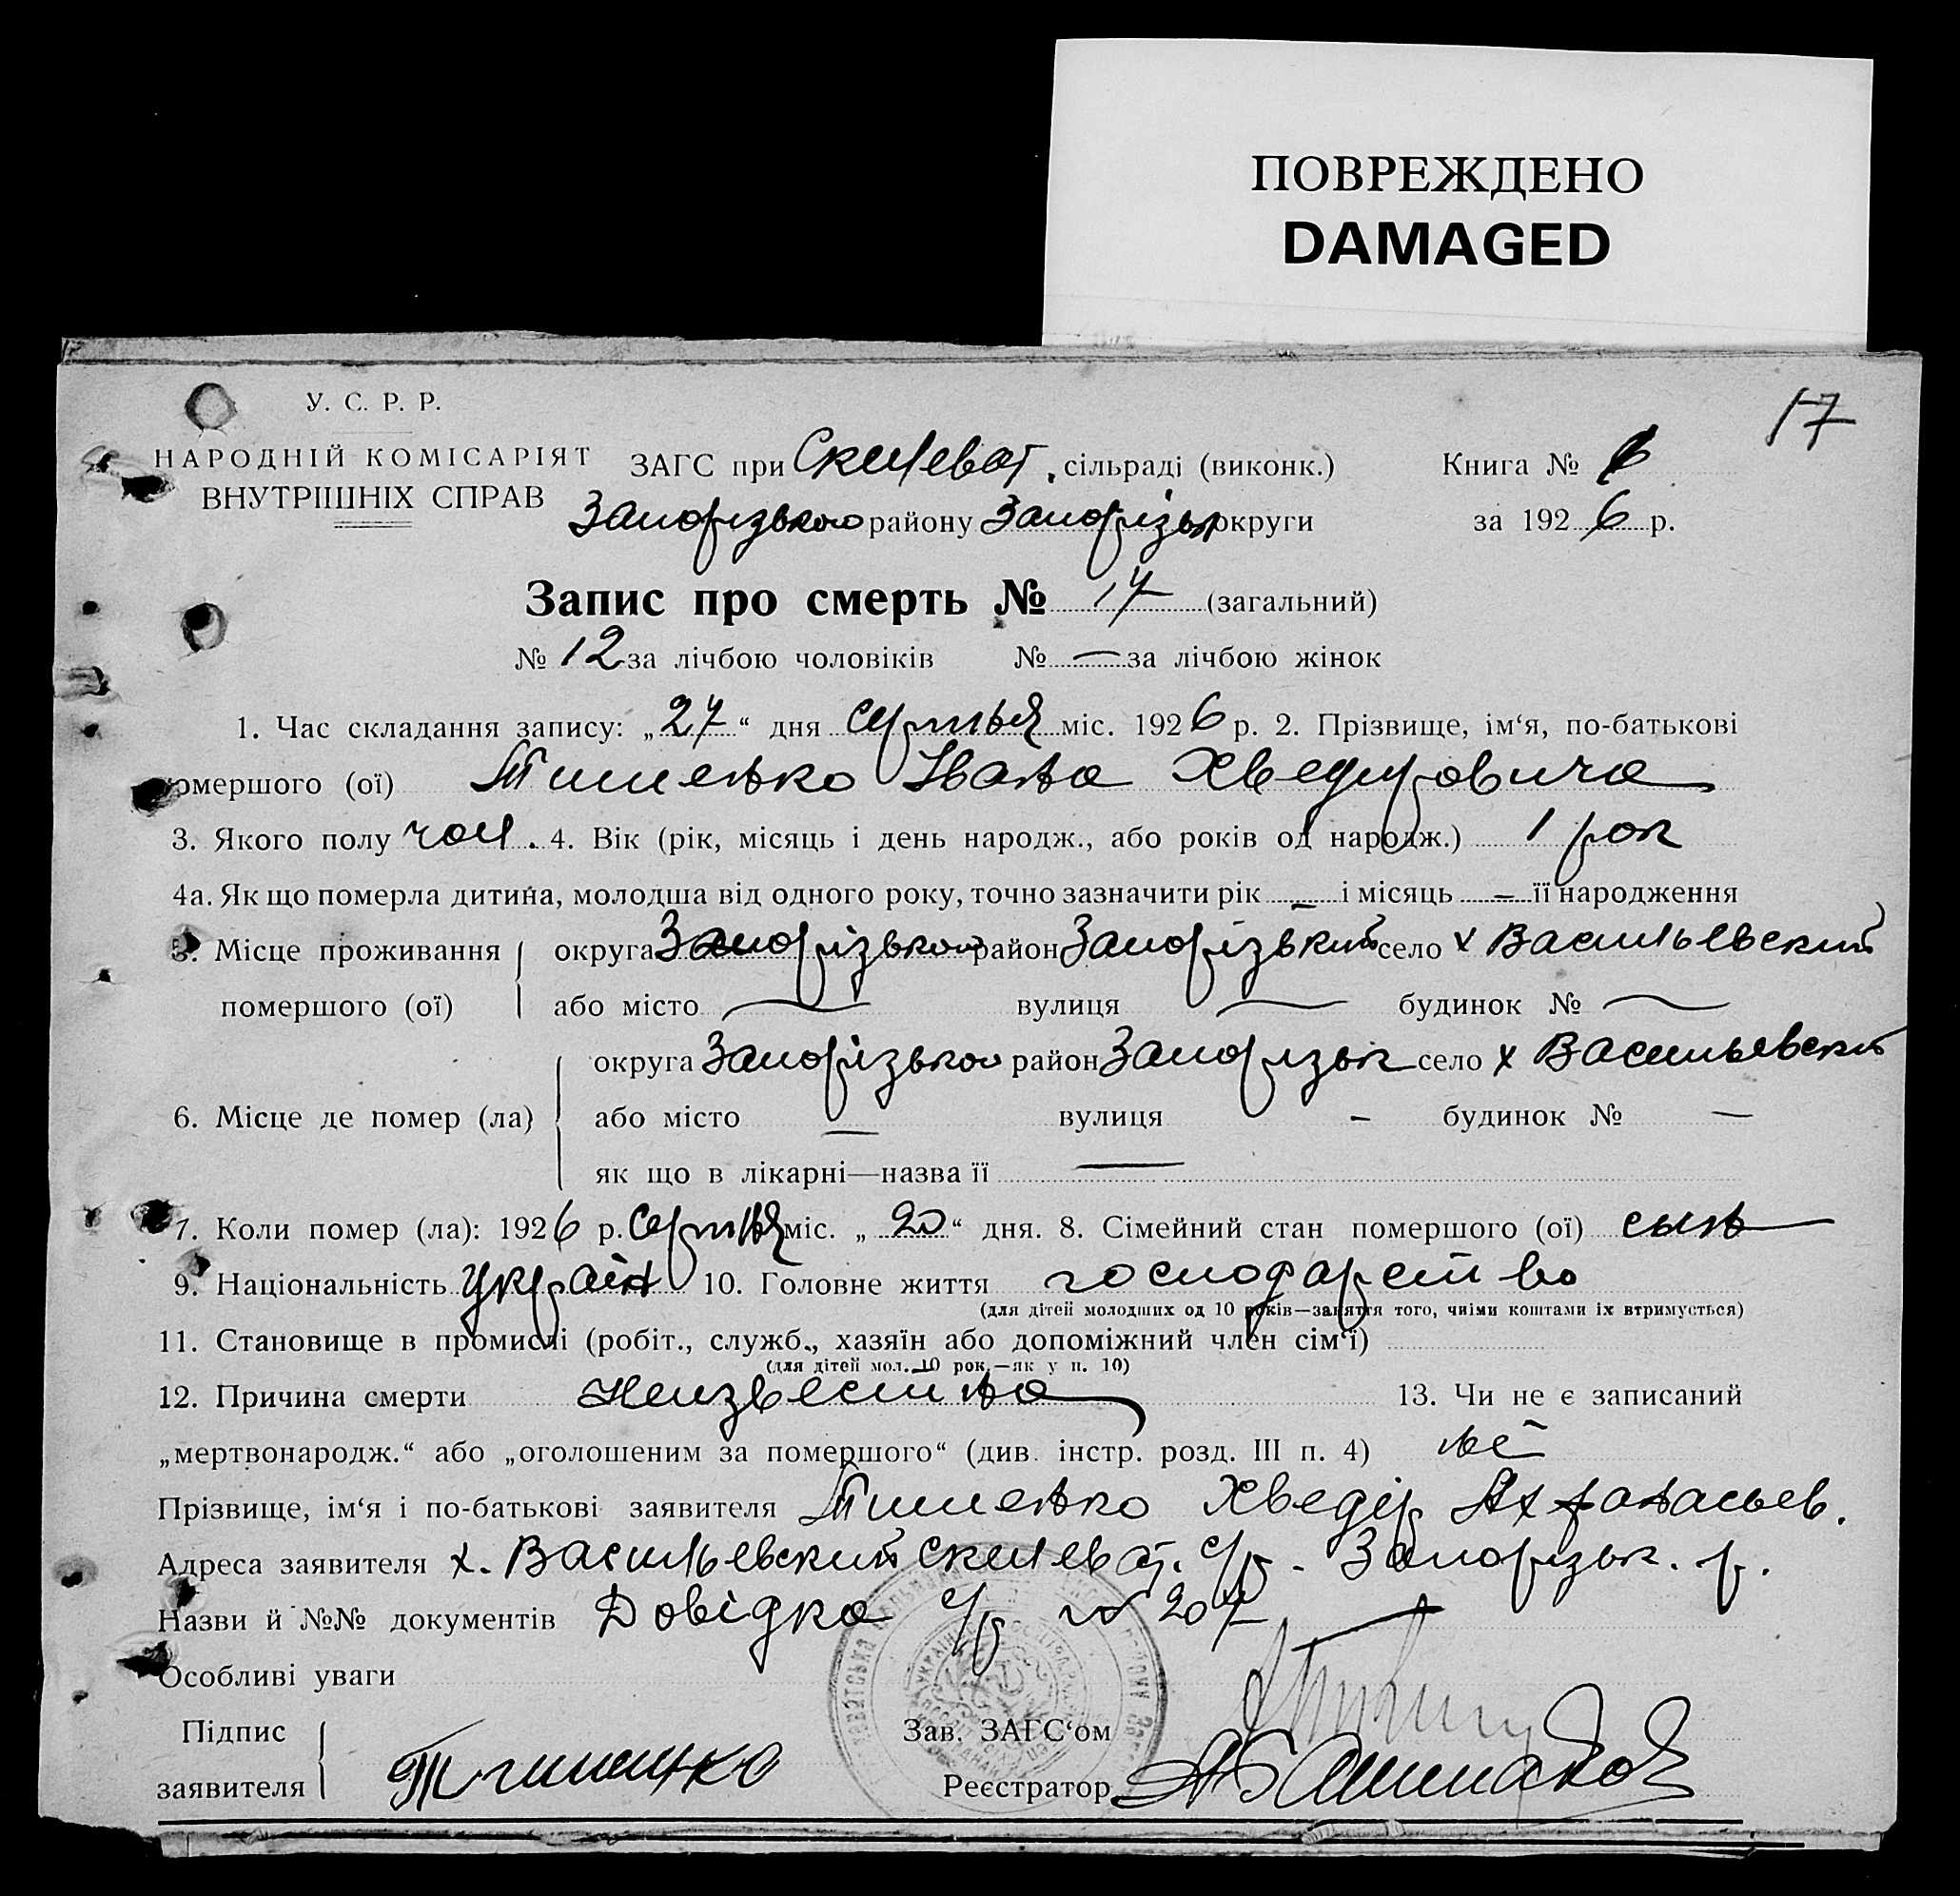 ПОВРЕЖДЕНО
DAMAGED
17
У. С. Р. Р.
НАРОДНІЙ КОМІСАРІЯТ
ВНУТРІШНІХ СПРАВ
ЗАГС при Скелеват. сільраді (виконк.)
Книга №
Запорізького району Запорізьк округи
за 1926 р.
Запис про смерть № 17 (загальний)
№ 12 за лічбою чоловіків № — за лічбою жінок
1. Час складання запису: „27“ дня серпня міс. 1926 р. 2. Прізвище, ім‘я, по-батькові
помершого (ої) Тишенко Івана Хведоровича
3. Якого полу чол. 4. Вік (рік, місяць і день народж., або років од народж.) 1 рок
4а. Як що померла дитина, молодша від одного року, точно зазначити рік — і місяць — її народження
5. Місце проживання округа Запорізького район Запорізький село х Васильевский
помершого (ої) або місто — вулиця — будинок № —
округа Запорізького район Запорізьк село х Васильевский
6. Місце де помер (ла) або місто — вулиця - будинок № —
як що в лікарні—назва її —
7. Коли помер (ла): 1926 р. серпня міс. „20“ дня. 8. Сімейний стан помершого (ої) сын
9. Національність україн 10. Головне життя господарство
(для дітей молодших од 10 років—заняття того, чиїми коштами їх втримується)
11. Становище в промислі (робіт., служб., хазяїн або допоміжний член сім‘ї)
(для дітей мол. 10 рок.—як у п. 10)
12. Причина смерти Неизвестна 13. Чи не є записаний
„мертвонародж.“ або „оголошеним за помершого“ (див. інстр. розд. III п. 4) нет
Прізвище, ім‘я і по-батькові заявителя Тишенко Хведір Ахфанасьев.
Адреса заявителя х. Васильевский Скелеват. с/р. Запорізьк. р.
Назви й №№ документів Довідка с/р № 207
Особливі уваги
Підпис
заявителя Тишенко
Зав. ЗАГС‘ом
Реєстратор